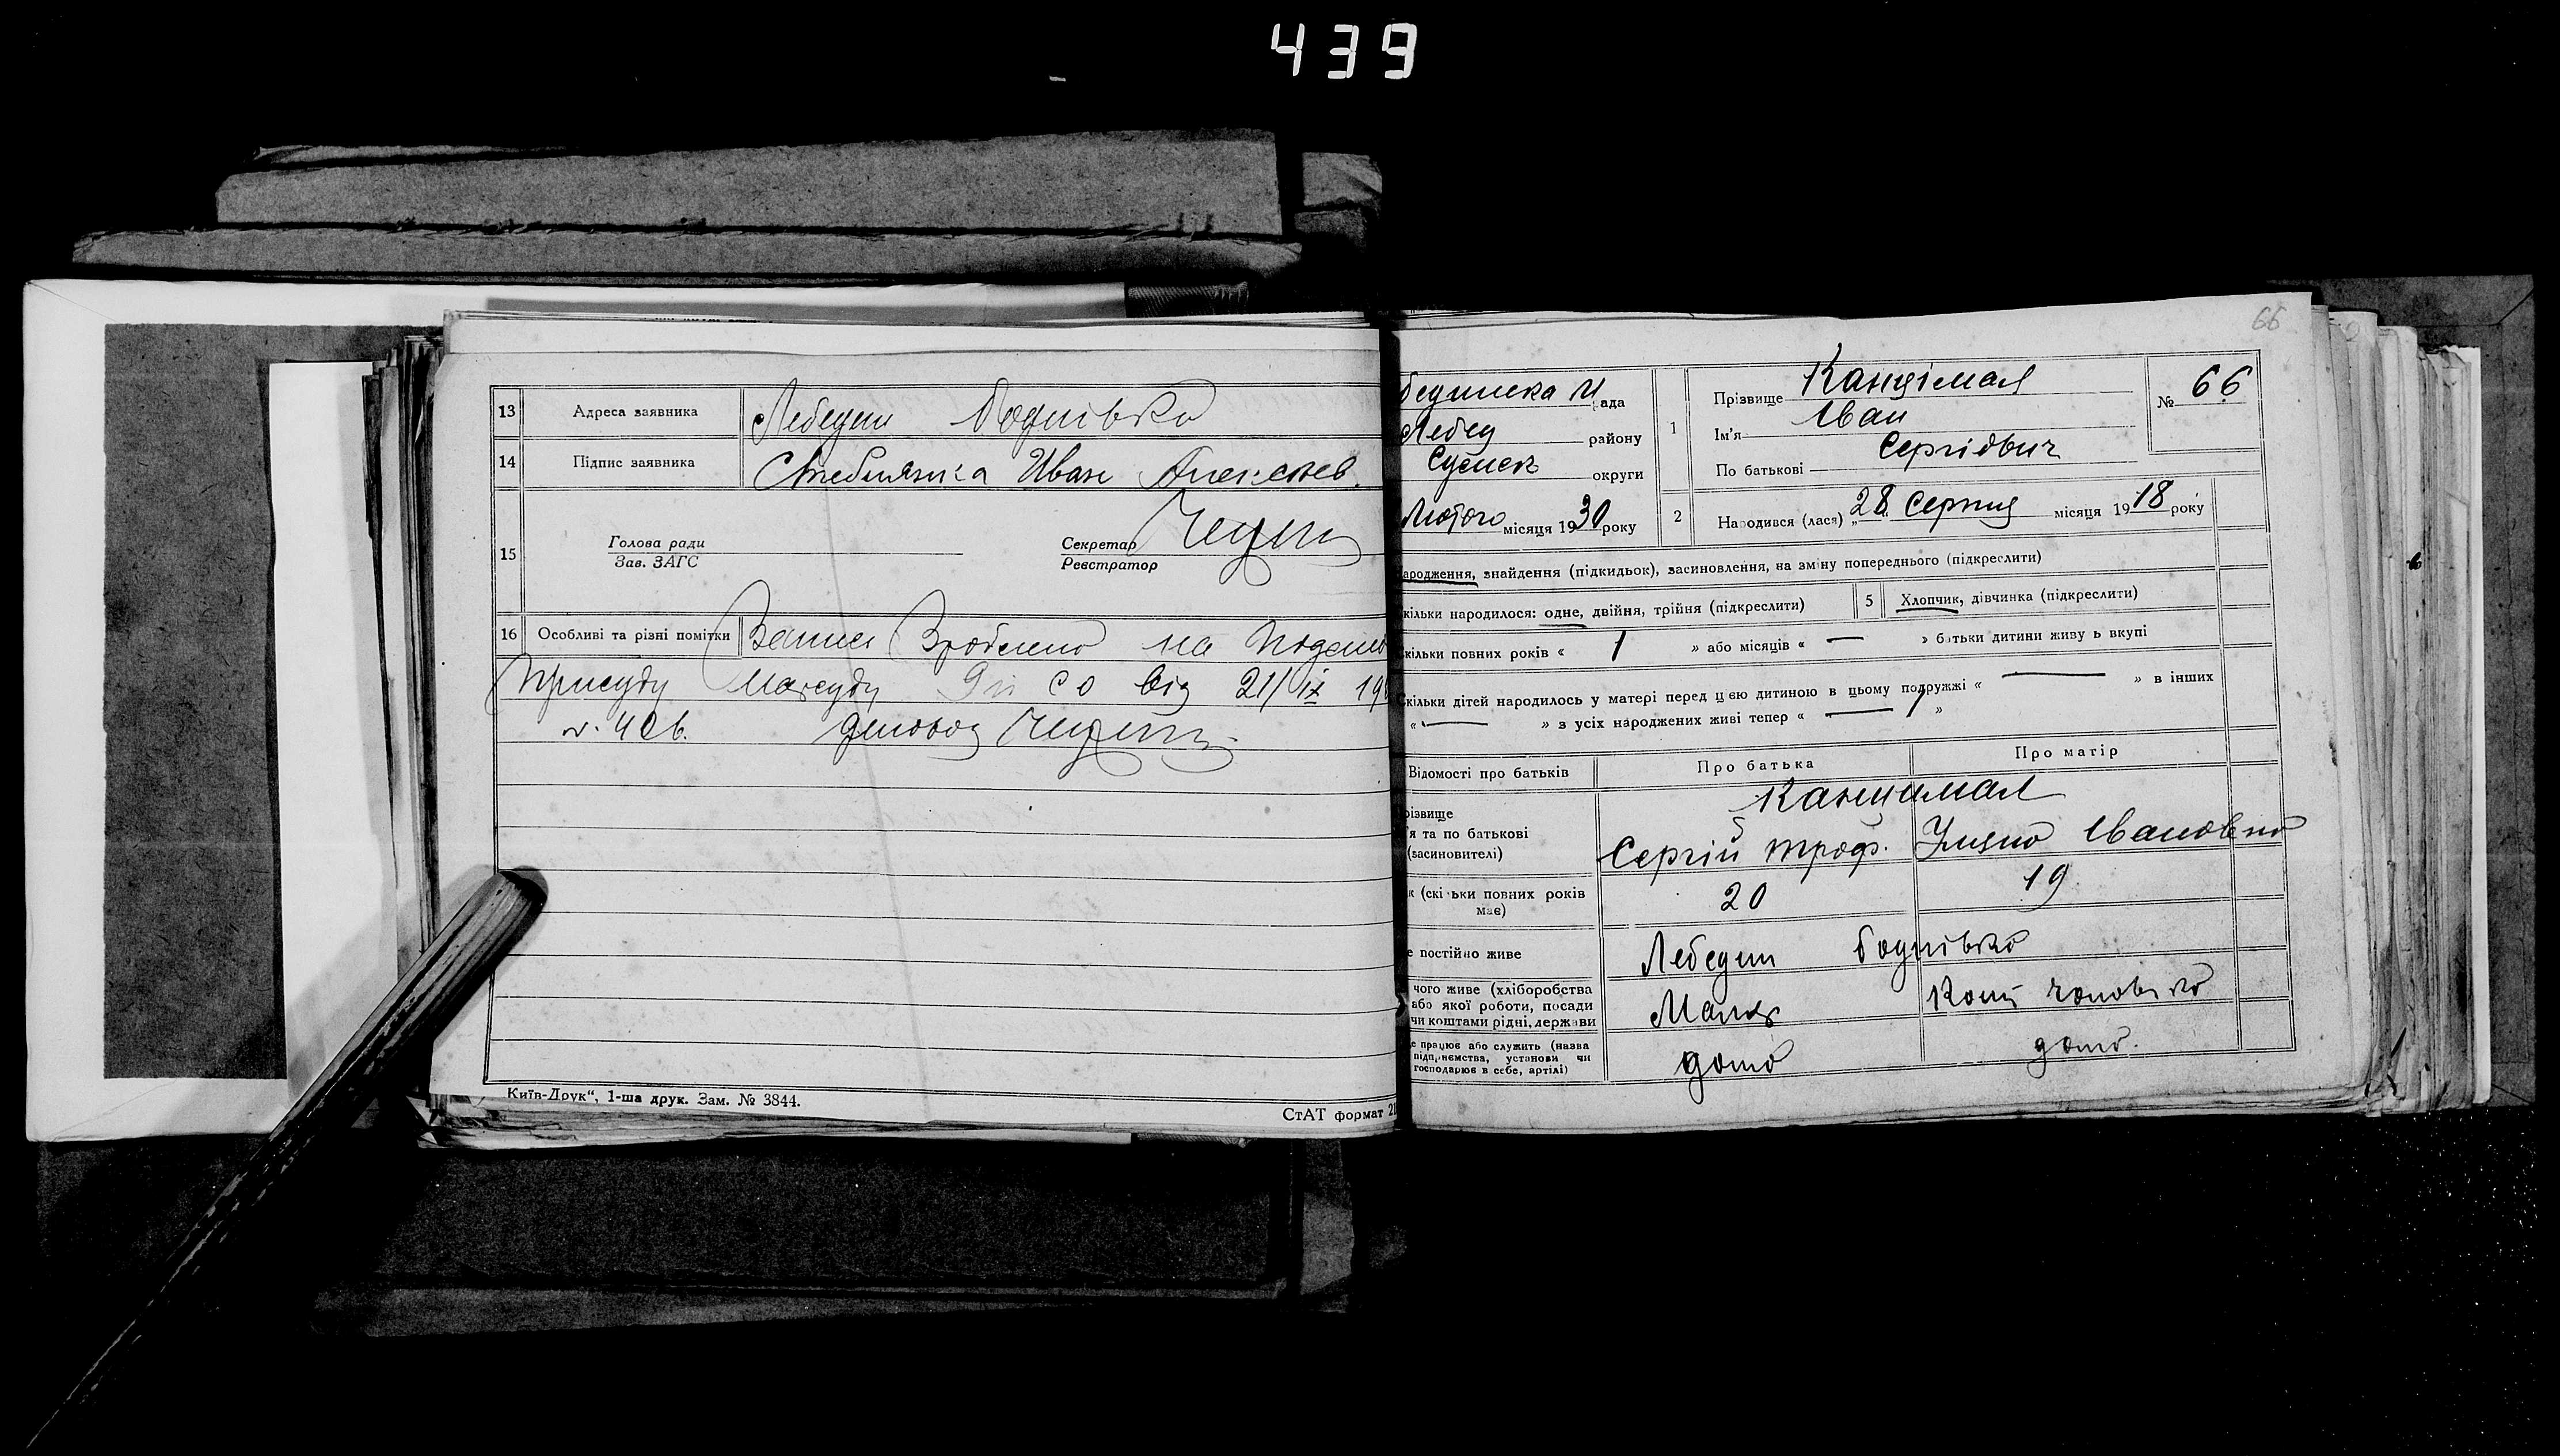 439
13 Адреса заявника Лебедин
14 Підпис заявника Иван Алексеев.
15 Голова ради
Зав. ЗАГС
Секретар
Реєстратор
16 Особливі та різні помітки Запис Зроблено на
Присуду від 21/IX
діловод
Київ-Друк“, 1-ша друк. Зам. № 3844.
СтАТ формат
66
ада
Лебед району
округи
Лютого місяця 1930 року
1 Прізвище Канцімал
Ім'я Іван
По батькові Сергійович
№ 66
2 Народився (лася) „28“ Серпня місяця 1918 року
ародження, знайдення (підкидьок), засиновлення, на зміну попереднього (підкреслити)
кільки народилося: одне, двійня, трійня (підкреслити) 5 Хлопчик, дівчинка (підкреслити)
кільки повних років « 1 » або місяців « — » батьки дитини живуть вкупі
кільки дітей народилось у матері перед цією дитиною в цьому подружжі « — » в інших
« — » з усіх народжених живі тепер « — »
Відомості про батьків Про батька Про матір
різвище
я та по батькові
(засиновителі)
Канцимал
Сергій Троф. Івановна
к (скільки повних років
має)
20 19
е постійно живе Лебедин
чого живе (хліборобства
або якої роботи, посади
чи коштами рідні, держави
Маляр
е працює або служить (назва
підприємства, установи чи
господарює в себе, артілі)
дома дома.